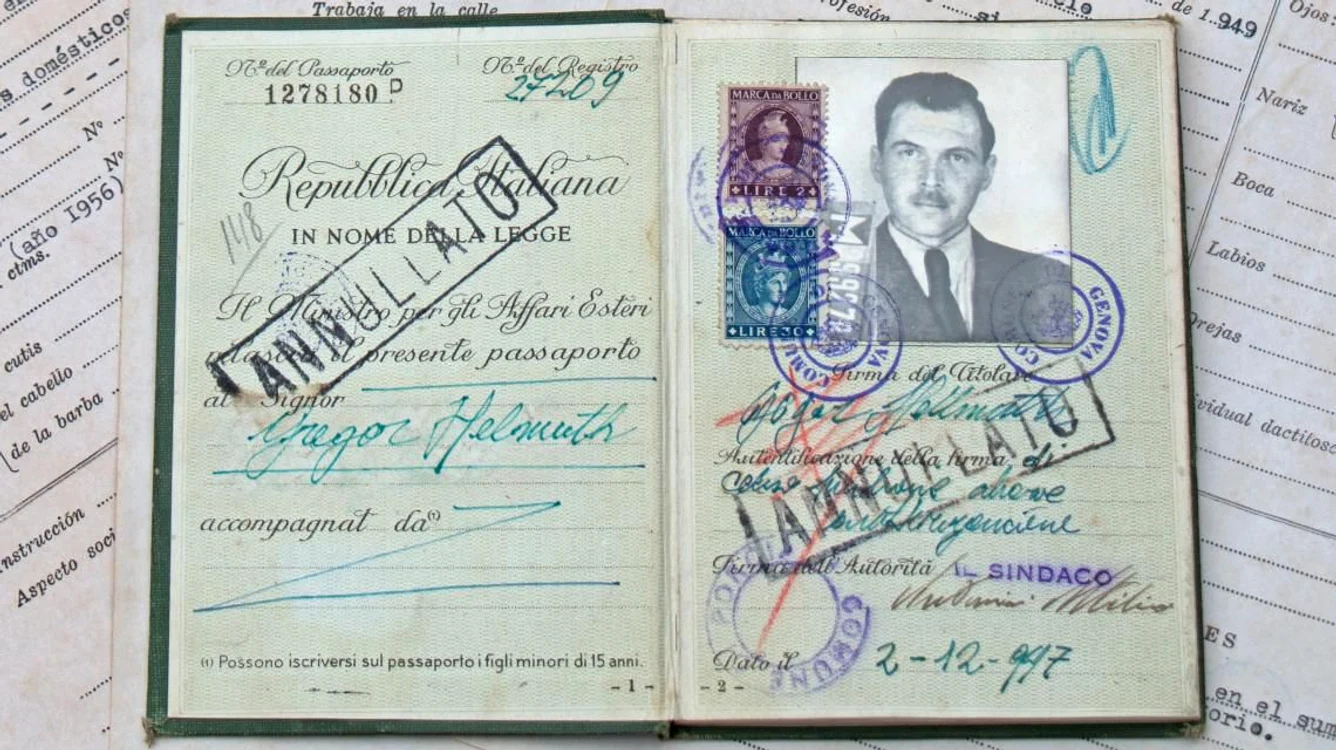 s domésticos
Nº
Nº
(año 1956)
ctms.
cutis
el cabello
de la barba
nstrucción
Aspecto soci
Trabaja en la calle
Nº del Passaporto
1278180 P
Nº del Registro
27209
Repubblica Italiana
148
IN NOME DELLA LEGGE
Il Ministro per gli Affari Esteri
rilascia il presente passaporto
al Signor
Gregor Helmuth
accompagnat da (1)
ANNULLATO
(1) Possono iscriversi sul passaporto i figli minori di 15 anni.
- 1 -
MARCA DA BOLLO
LIRE 2
MARCA DA BOLLO
LIRE 30
COMUNE GENOVA
GENOVA
Firma del Titolare
Autentificazione della firma di
ANNULLATO
Firma dell'Autorità IL SINDACO
COMUNE
Dato il 2-12-947
- 2 -
ofesión
si
de 1.949
Ojos
Nariz
Boca
Labios
Orejas
vidual dactilosc
ES
en el sum
orio.